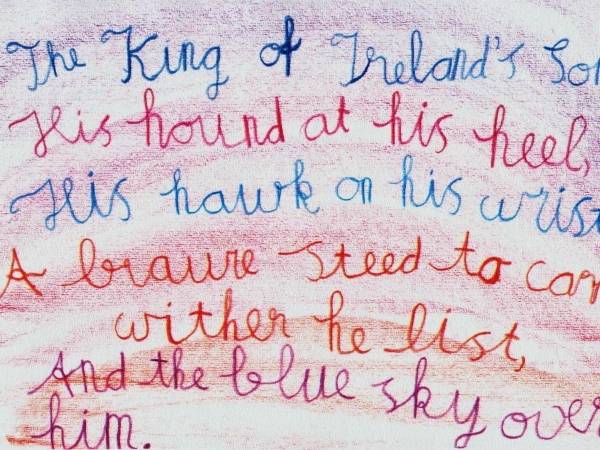 The King of Ireland's Son
His hound at his heel,
His hawk on his wrist
A brave steed to car
wither he list,
And the blue sky over
him.